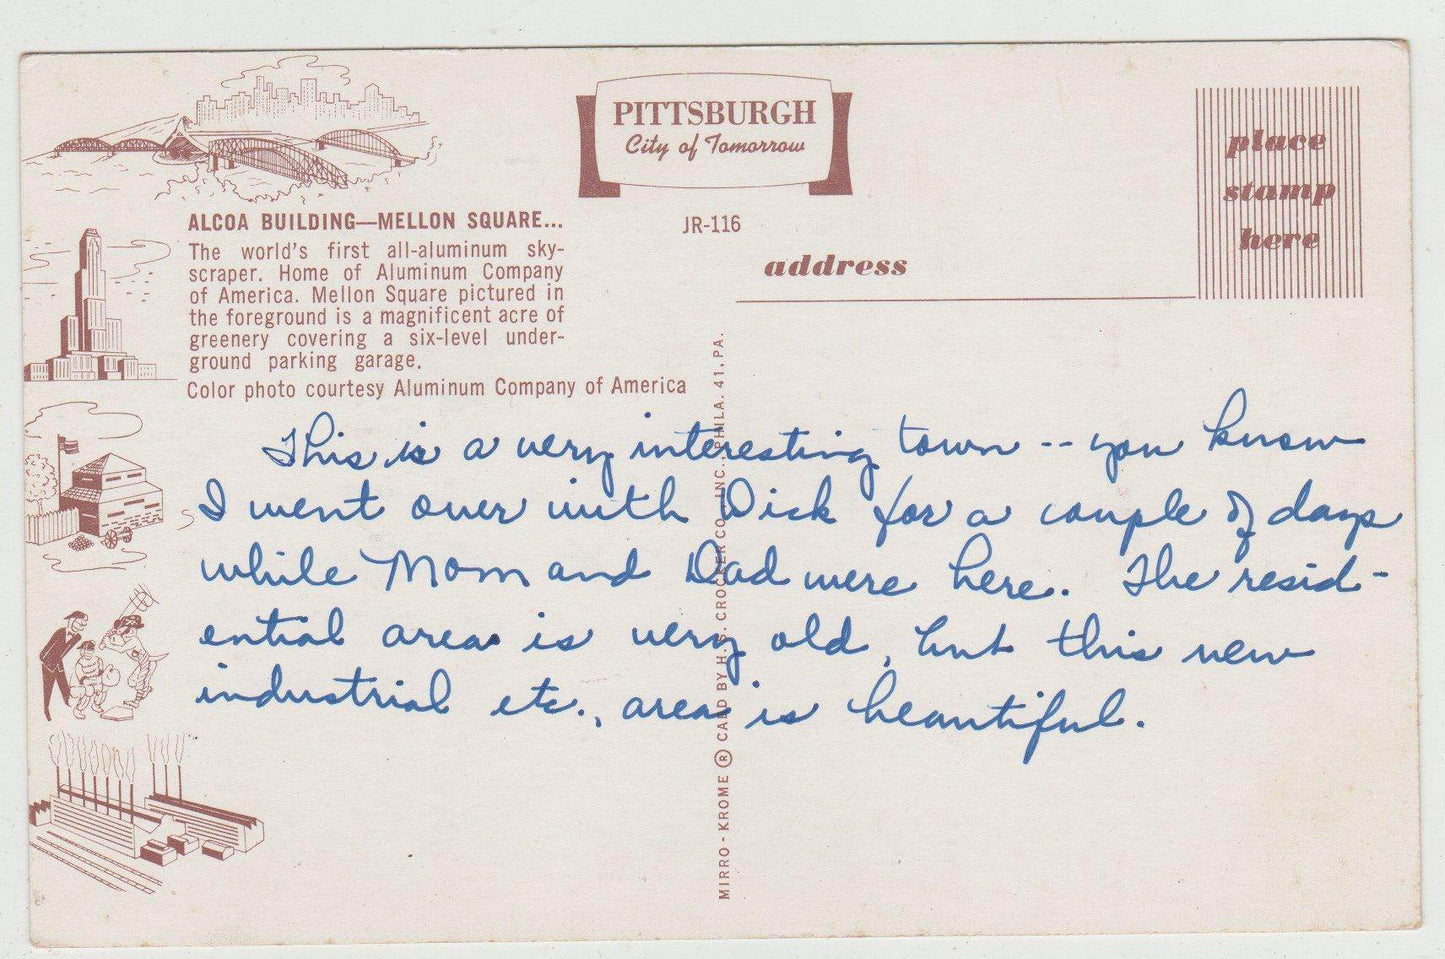 PITTSBURGH
City of Tomorrow
place
stamp
here
ALCOA BUILDING—MELLON SQUARE...
The world's first all-aluminum sky-
scraper. Home of Aluminum Company
of America. Mellon Square pictured in
the foreground is a magnificent acre of
greenery covering a six-level under-
ground parking garage.
Color photo courtesy Aluminum Company of America
JR-116
address
This is a very interesting town -- you know
I went over with Dick for a couple of days
while Mom and Dad were here. The resid-
ential area is very old, but this new
industrial etc., area is beautiful.
MIRRO-KROME ® CARD BY H. S. CROCKER CO., INC., PHILA. 41, PA.